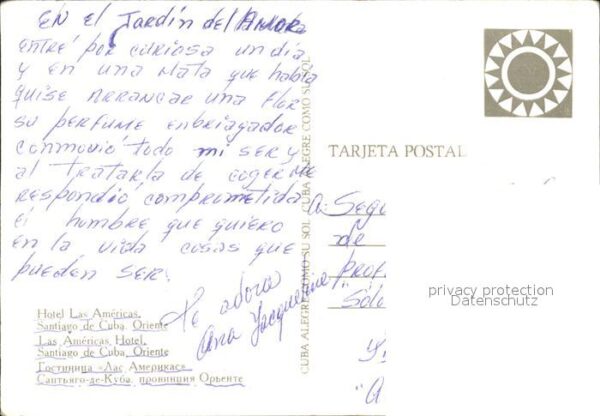 EN El Jardín del Amor
entré por curiosa un día
y en una mata que había
quise arrancar una flor
su perfume enbriagador
conmovió todo mi ser y
al tratarla de coger me
respondió comprometida
el hombre que quiero
en la vida cosas que
pueden ser.
te adora
Ana Jacqueline
Hotel Las Américas.
Santiago de Cuba. Oriente
Las Américas Hotel.
Santiago de Cuba. Oriente
Гостиница «Лас Америкас»
Сантьяго-де-Куба, провинция Орьенте
CUBA ALEGRE COMO SU SOL. CUBA ALEGRE COMO SU SOL
TARJETA POSTAL
a: Segu
de
prof
Sólo
"A
privacy protection
Datenschutz